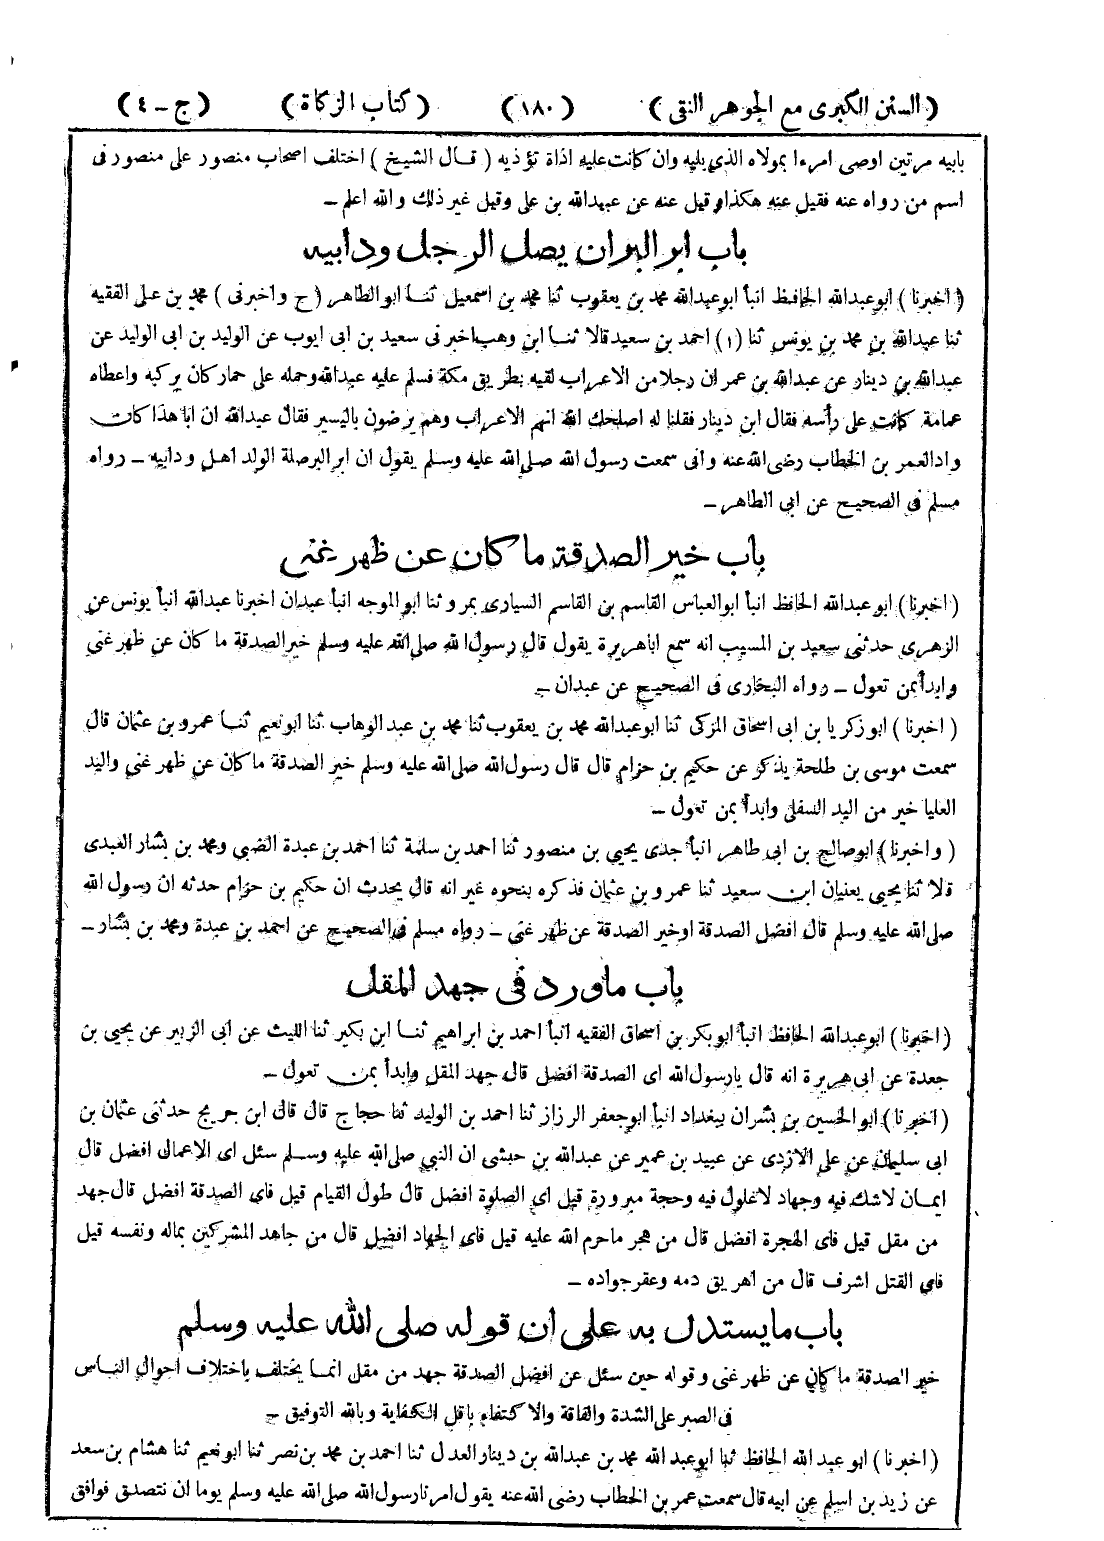 ( السنن الكبرى مع الجوهر النقى ) ( ١٨٠ ) ( كتاب الزكاة ) ( ج - ٤ )
بابيه مرتين اوصى امرءا بمولاه الذى يليه وان كانت عليه اذاة تؤذيه ( قال الشيخ ) اختلف اصحاب منصور على منصور فى
اسم من رواه عنه فقيل عنه هكذا وقيل عنه عن عبيدالله بن على وقيل غير ذلك والله اعلم –
باب ابر البر ان يصل الرجل ود ابيه
( اخبرنا ) ابو عبدالله الحافظ انبأ ابو عبدالله محمد بن يعقوب ثنا محمد بن اسمعيل ثنا ابو الطاهر ( ح واخبرنى ) محمد بن على الفقيه
ثنا عبدالله بن محمد بن يونس ثنا (١) احمد بن سعيد قالا ثنا ابن وهب اخبر نى سعيد بن ابى ايوب عن الوليد بن ابى الوليد عن
عبدالله بن دينار عن عبدالله بن عمر ان رجلا من الاعراب لقيه بطريق مكة فسلم عليه عبدالله وحمله على حمار كان يركبه واعطاه
عمامة كانت على رأسه فقال ابن دينار فقلنا له اصلحك الله انهم الاعراب وهم يرضون باليسير فقال عبدالله ان ابا هذا كان
وادا لعمر بن الخطاب رضى الله عنه وانى سمعت رسول الله صلى الله عليه وسلم يقول ان ابر البر صلة الولد اهل ود ابيه – رواه
مسلم فى الصحيح عن ابى الطاهر –
باب خير الصدقة ما كان عن ظهر غنى
( اخبرنا ) ابو عبدالله الحافظ انبأ ابو العباس القاسم بن القاسم السيارى بمرو ثنا ابو الموجه انبأ عبدان اخبرنا عبدالله انبأ يونس عن
الزهرى حدثنى سعيد بن المسيب انه سمع اباهريرة يقول قال رسول الله صلى الله عليه وسلم خير الصدقة ما كان عن ظهر غنى
وابدأ بمن تعول – رواه البخارى فى الصحيح عن عبدان –
( اخبرنا ) ابو زكريا بن ابى اسحاق المزكى ثنا ابو عبدالله محمد بن يعقوب ثنا محمد بن عبد الوهاب ثنا ابو نعيم ثنا عمرو بن عثمان قال
سمعت موسى بن طلحة يذكر عن حكيم بن حزام قال قال رسول الله صلى الله عليه وسلم خير الصدقة ما كان عن ظهر غنى واليد
العليا خير من اليد السفلى وابدأ بمن تعول –
( واخبرنا ) ابو صالح بن ابى طاهر انبأ جدى يحيى بن منصور ثنا احمد بن سلمة ثنا احمد بن عبدة الضبى ومحمد بن بشار العبدى
قالا ثنا يحيى يعنيان ابن سعيد ثنا عمرو بن عثمان فذكره بنحوه غير انه قال يحدث ان حكيم بن حزام حدثه ان رسول الله
صلى الله عليه وسلم قال افضل الصدقة او خير الصدقة عن ظهر غنى – رواه مسلم فى الصحيح عن احمد بن عبدة ومحمد بن بشار –
باب ما ورد فى جهد المقل
( اخبرنا ) ابو عبدالله الحافظ انبأ ابو بكر بن اسحاق الفقيه انبأ احمد بن ابراهيم ثنا ابن بكير ثنا الليث عن ابى الزبير عن يحيى بن
جعدة عن ابى هريرة انه قال يا رسول الله اى الصدقة افضل قال جهد المقل وابدأ بمن تعول –
( اخبرنا ) ابو الحسين بن بشران ببغداد انبأ ابو جعفر الرزاز ثنا احمد بن الوليد ثنا حجاج قال قال ابن جريج حدثنى عثمان بن
ابى سليمان عن على الازدى عن عبيد بن عمير عن عبدالله بن حبشى ان النبى صلى الله عليه وسلم سئل اى الاعمال افضل قال
ايمان لا شك فيه وجهاد لا غلول فيه وحجة مبرورة قيل اى الصلوة افضل قال طول القيام قيل فاى الصدقة افضل قال جهد
من مقل قيل فاى الهجرة افضل قال من هجر ما حرم الله عليه قيل فاى الجهاد افضل قال من جاهد المشركين بماله ونفسه قيل
فاى القتل اشرف قال من اهريق دمه وعقر جواده –
باب ما يستدل به على ان قوله صلى الله عليه وسلم
خير الصدقة ما كان عن ظهر غنى وقوله حين سئل عن افضل الصدقة جهد من مقل انما يختلف باختلاف احوال الناس
فى الصبر على الشدة والفاقة والاكتفاء باقل الكفاية وبالله التوفيق –
( اخبرنا ) ابو عبد الله الحافظ ثنا ابو عبد الله محمد بن عبدالله بن دينار العدل ثنا احمد بن محمد بن نصر ثنا ابو نعيم ثنا هشام بن سعد
عن زيد بن اسلم عن ابيه قال سمعت عمر بن الخطاب رضى الله عنه يقول امرنا رسول الله صلى الله عليه وسلم يوما ان نتصدق فوافق